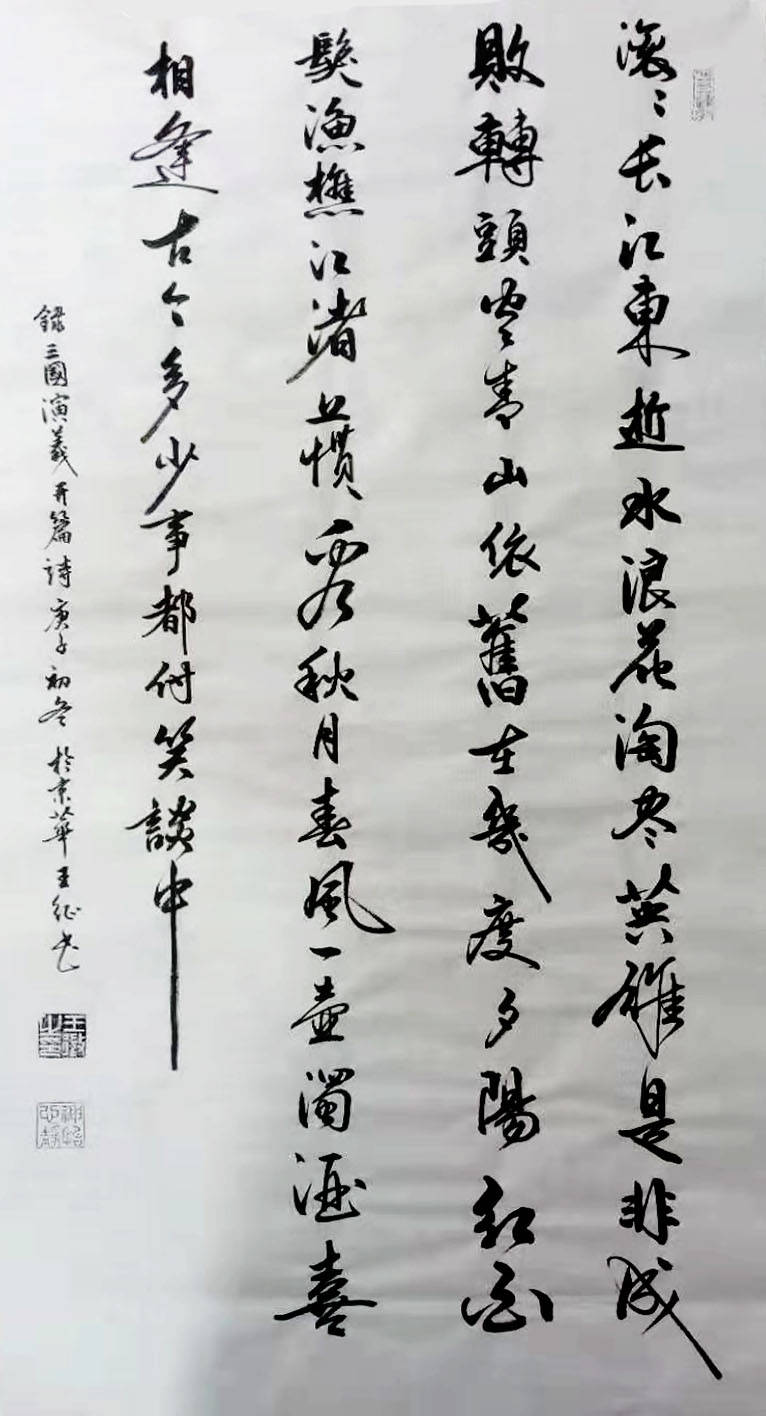 滾〻長江東逝水浪花淘尽英雄是非成
敗轉頭空青山依舊在幾度夕陽紅白
髮漁樵江渚上慣看秋月春風一壺濁酒喜
相逢古今多少事都付笑談中
錄三國演義开篇詩庚子初冬於京華王征书